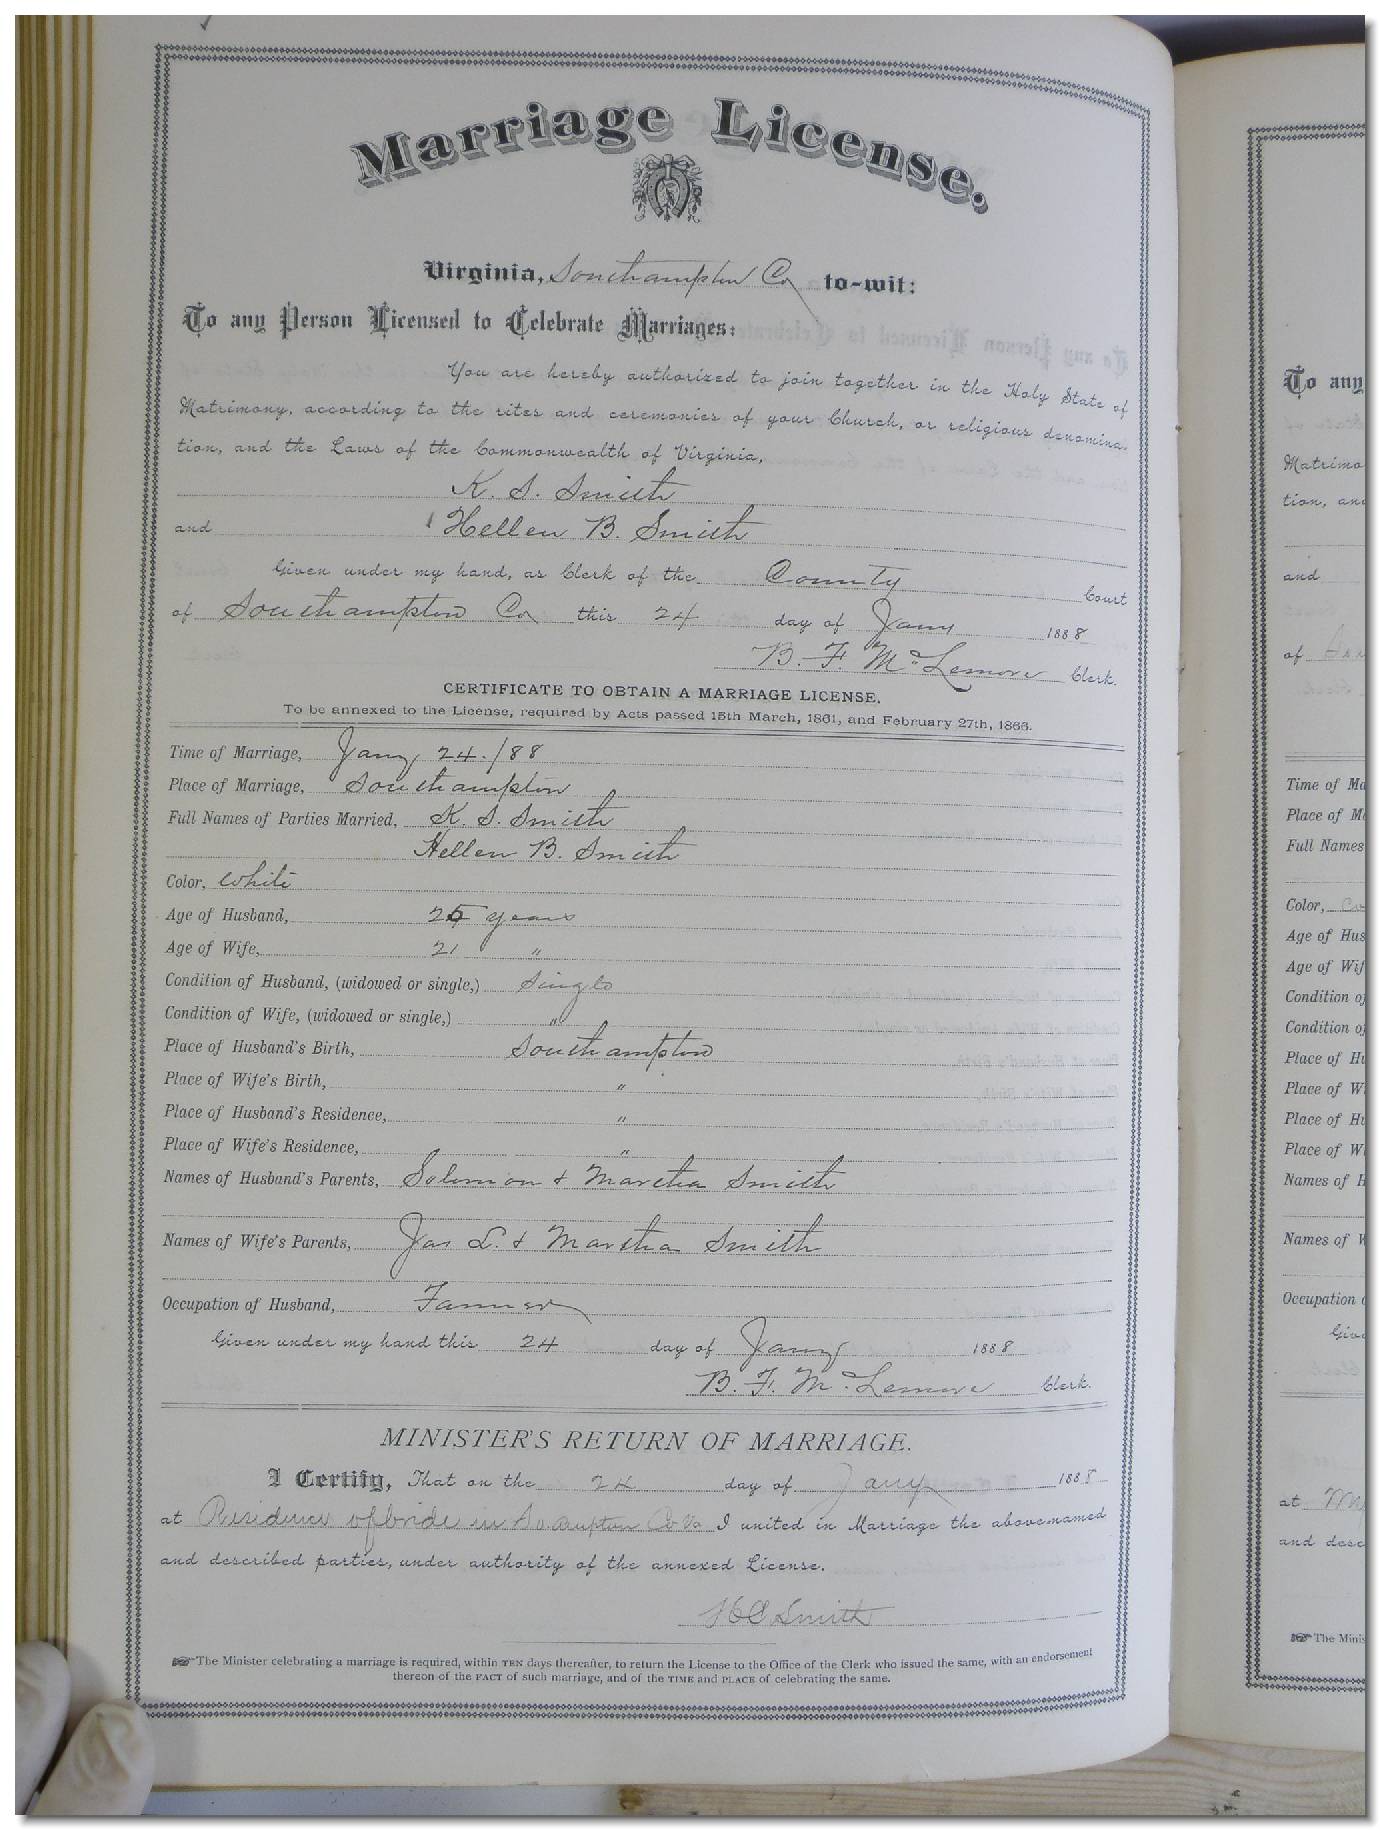 Marriage License.
Virginia, Southampton Co to-wit:
To any Person Licensed to Celebrate Marriages:
You are hereby authorized to join together in the Holy State of
Matrimony, according to the rites and ceremonies of your Church, or religious denomina-
tion, and the Laws of the Commonwealth of Virginia,
K. S. Smith
and Hellen B. Smith
Given under my hand, as Clerk of the County Court
of Southampton Co this 24 day of Jany 1888
B. F. McLemore Clerk.
CERTIFICATE TO OBTAIN A MARRIAGE LICENSE.
To be annexed to the License, required by Acts passed 15th March, 1861, and February 27th, 1866.
Time of Marriage, Jany 24./88
Place of Marriage, Southampton
Full Names of Parties Married, K. S. Smith
Hellen B. Smith
Color, White
Age of Husband, 25 years
Age of Wife, 21 "
Condition of Husband, (widowed or single,) Single
Condition of Wife, (widowed or single,) "
Place of Husband's Birth, Southampton
Place of Wife's Birth, "
Place of Husband's Residence, "
Place of Wife's Residence, "
Names of Husband's Parents, Solomon & Martha Smith
Names of Wife's Parents, Jas L. & Martha Smith
Occupation of Husband, Farmer
Given under my hand this 24 day of Jany 1888
B. F. McLemore Clerk.
MINISTER'S RETURN OF MARRIAGE.
I Certify, That on the 24 day of Jany 1888
at Residence of bride in So.ampton Co Va I united in Marriage the above-named
and described parties, under authority of the annexed License.
H C Smith
☞ The Minister celebrating a marriage is required, within TEN days thereafter, to return the License to the Office of the Clerk who issued the same, with an endorsement
thereon of the FACT of such marriage, and of the TIME and PLACE of celebrating the same.
To any
Matrimo
tion, an
and
of
Time of Ma
Place of M
Full Names
Color,
Age of Hus
Age of Wif
Condition o
Condition o
Place of Hu
Place of W
Place of Hu
Place of W
Names of H
Names of W
Occupation o
Give
at
and desc
☞ The Minis